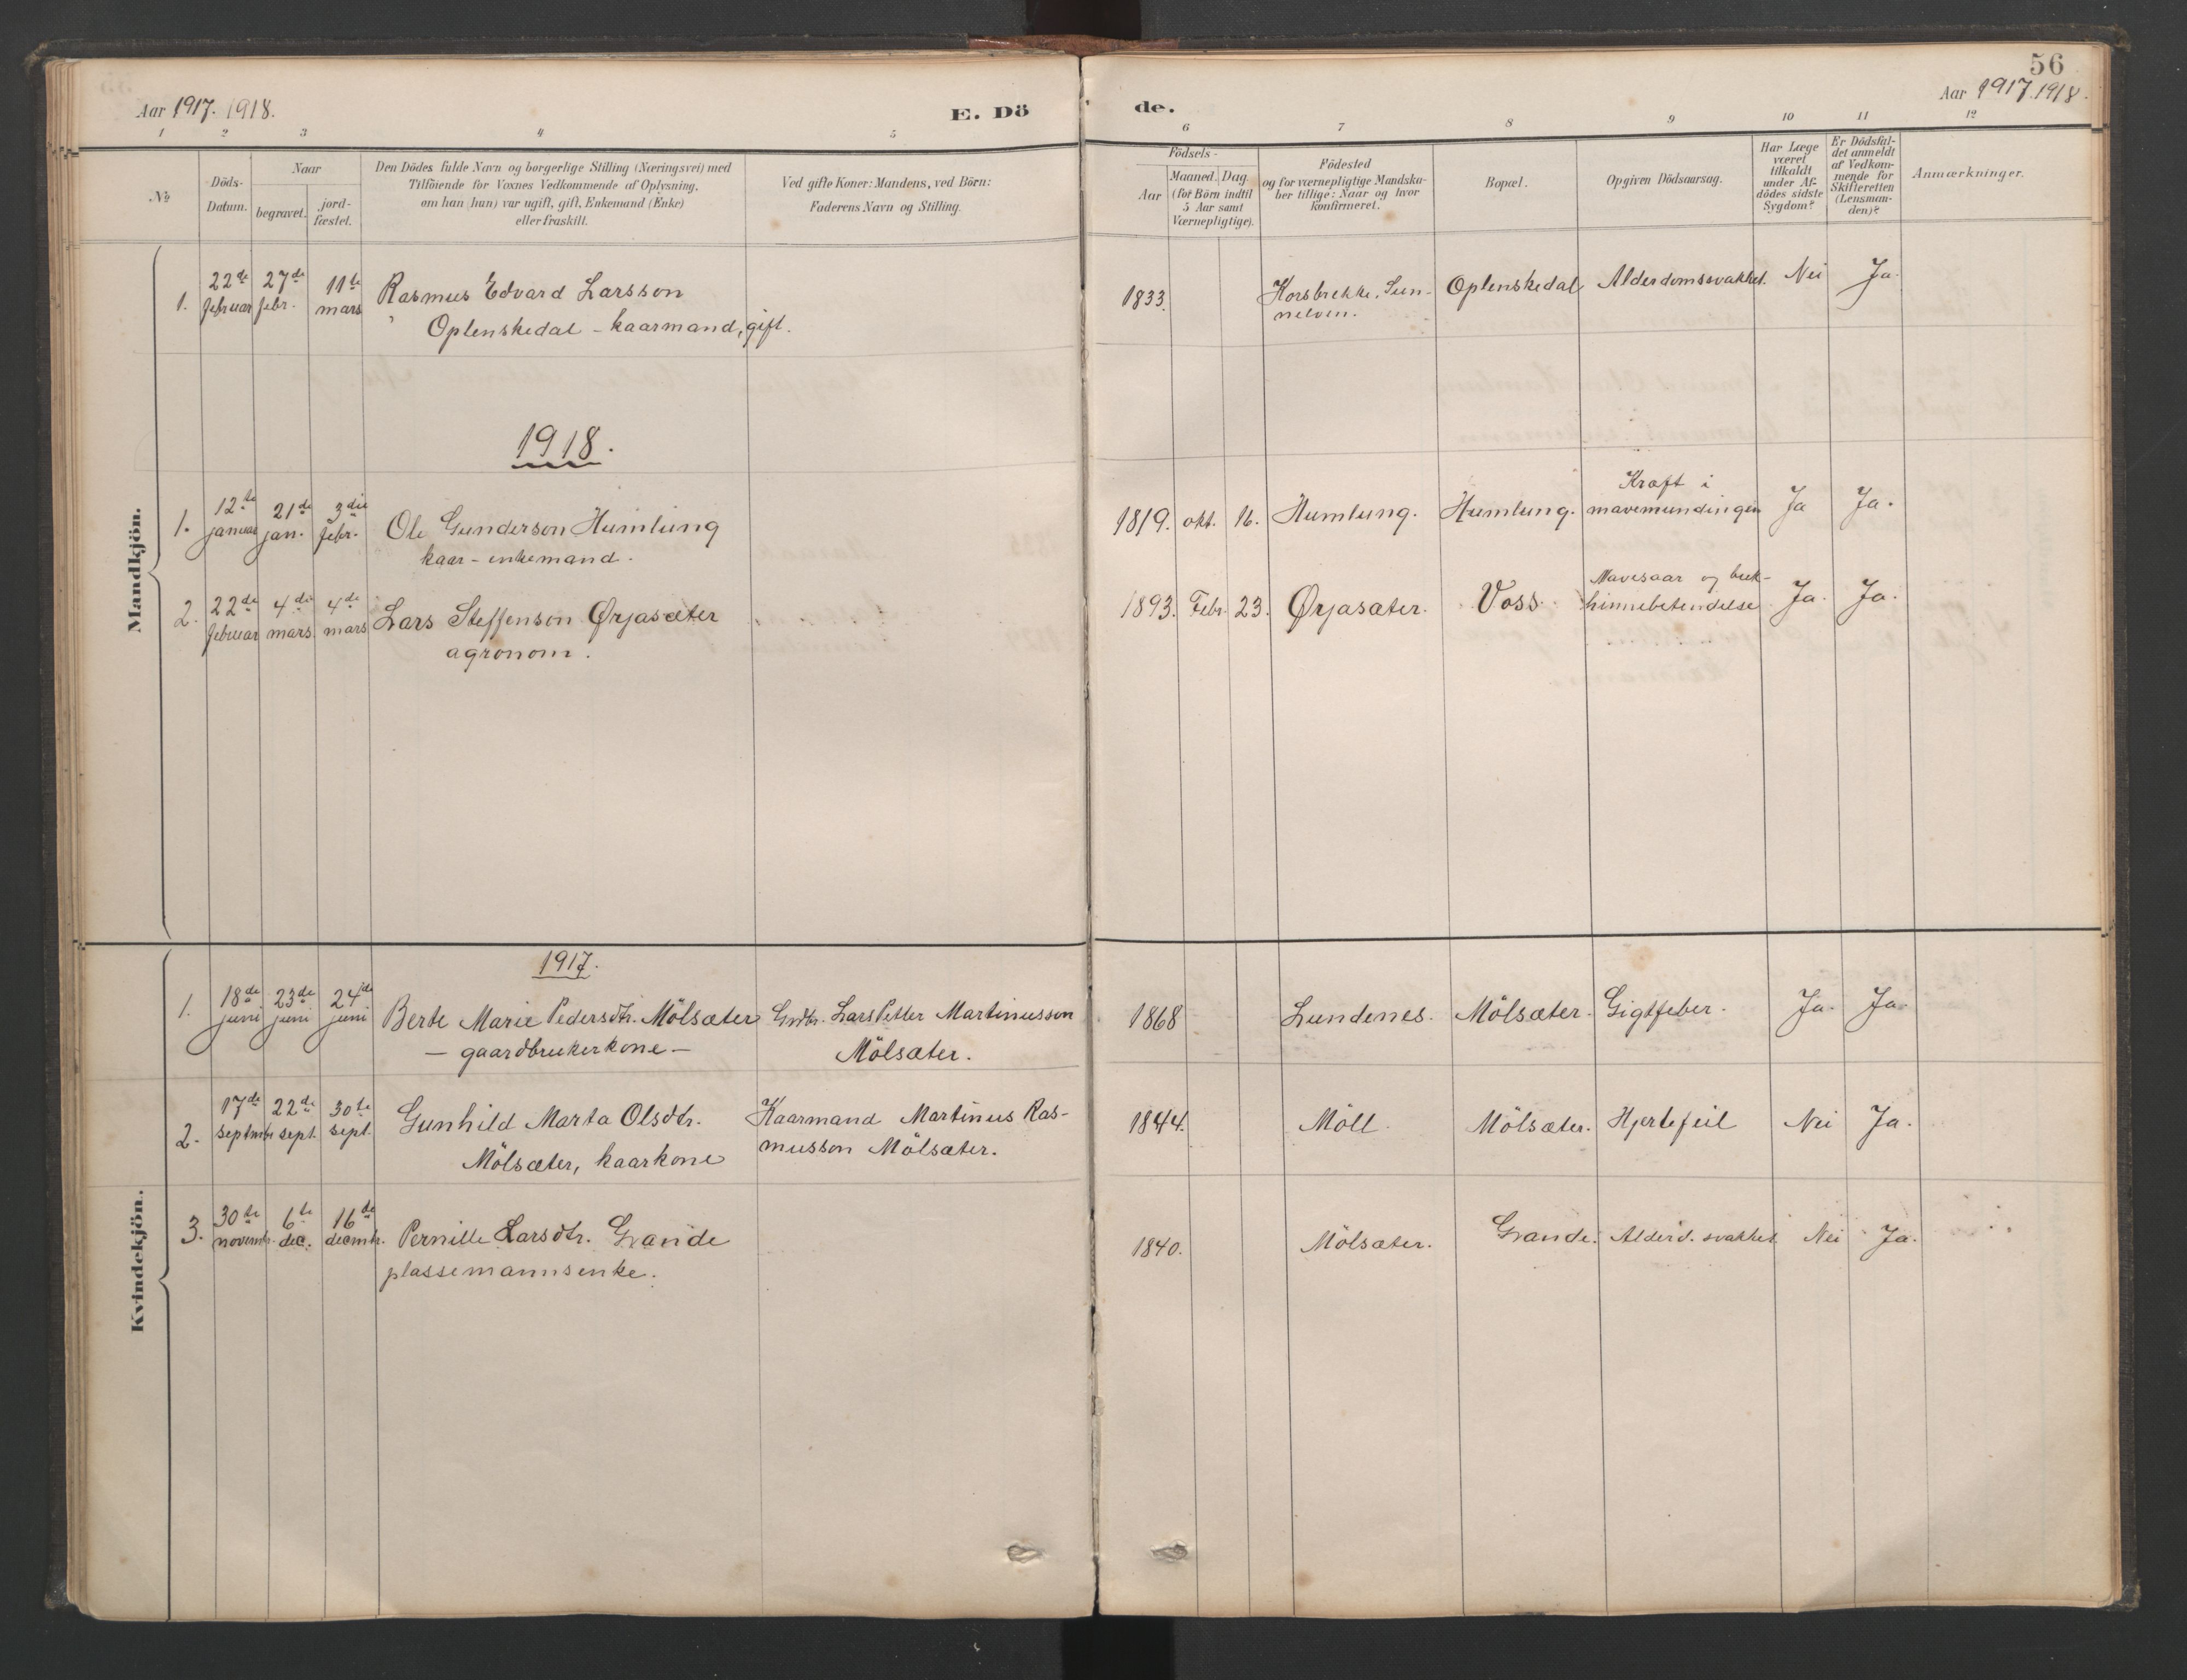 56
Aar 1917. 1918.
E. Dö
de.
Aar 1917. 1918.
1 2 3 4 5 6 7 8 9 10 11 12
No
Döds-
Datum.
Naar
begravet.
jord-
fæstet.
Den Dödes fulde Navn og borgerlige Stilling (Næringsvei) med
Tilföiende for Voxnes Vedkommende af Oplysning,
om han (hun) var ugift, gift, Enkemand (Enke)
eller fraskilt.
Ved gifte Koner: Mandens, ved Börn:
Faderens Navn og Stilling.
Födsels-
Aar
Maaned. Dag.
(for Börn indtil
5 Aar samt
Værnepligtige).
Födested
og for værnepligtige Mandska-
ber tillige: Naar og hvor
konfirmeret.
Bopæl.
Opgiven Dödsaarsag.
Har Læge
været
tilkaldt
under Af-
dödes sidste
Sygdom?
Er Dödsfal-
det anmeldt
af Vedkom-
mende for
Skifteretten
(Lensman-
den)?
Anmærkninger.
Mandkjön.
1. 22de februar 27de febr. 11te mars Rasmus Edvard Larsson
Oplenskedal - kaarmand, gift.
1833. Korsbrekke, Sun-
nelven.
Oplenskedal Alderdomssvakhet. Nei Ja.
1918.
1. 12te januar 21de jan. 3die febr. Ole Gunderson Humlung
kaar-enkemand.
1819. okt. 16. Humlung. Humlung. Kræft i
mavemundingen Ja Ja.
2. 22de februar 4de mars. 4de mars Lars Steffenson Ørjasæter
agronom.
1893. Febr. 23. Ørjasæter. Voss. Mavesaar og buk-
hinnebetendelse Ja. Ja.
Kvindekjön.
1917.
1. 18de juni 23de juni 24de juni Berte Marie Pedersdtr. Mölsæter Grdbr. Lars Petter Martinusson
- gaardbrukerkone - Mölsæter.
1868 Lundenes. Mölsæter. Gigtfeber. Ja. Ja.
2. 17de septmbr 22de sept. 30te sept. Gunhild Marta Olsdtr. Kaarmand Martinus Ras-
Mölsæter, kaarkone musson Mölsæter.
1844. Möll. Mölsæter. Hjertefeil Nei Ja.
3. 30te novembr. 6te dec. 16de decmbr. Pernille Larsdtr. Grande
plassemannsenke.
1840. Mölsæter. Grande. Alderd. svakhet Nei Ja.